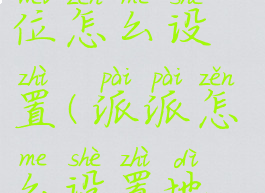 位怎么设
zhì pài pài zěn
置(派派怎
me shè zhì dì
么设置地